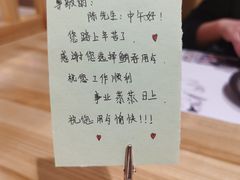 尊敬的:
陈先生:中午好!
您路上辛苦了
感谢您选择鮨寿用点
祝您工作顺利
事业蒸蒸日上
祝您用点愉快!!!